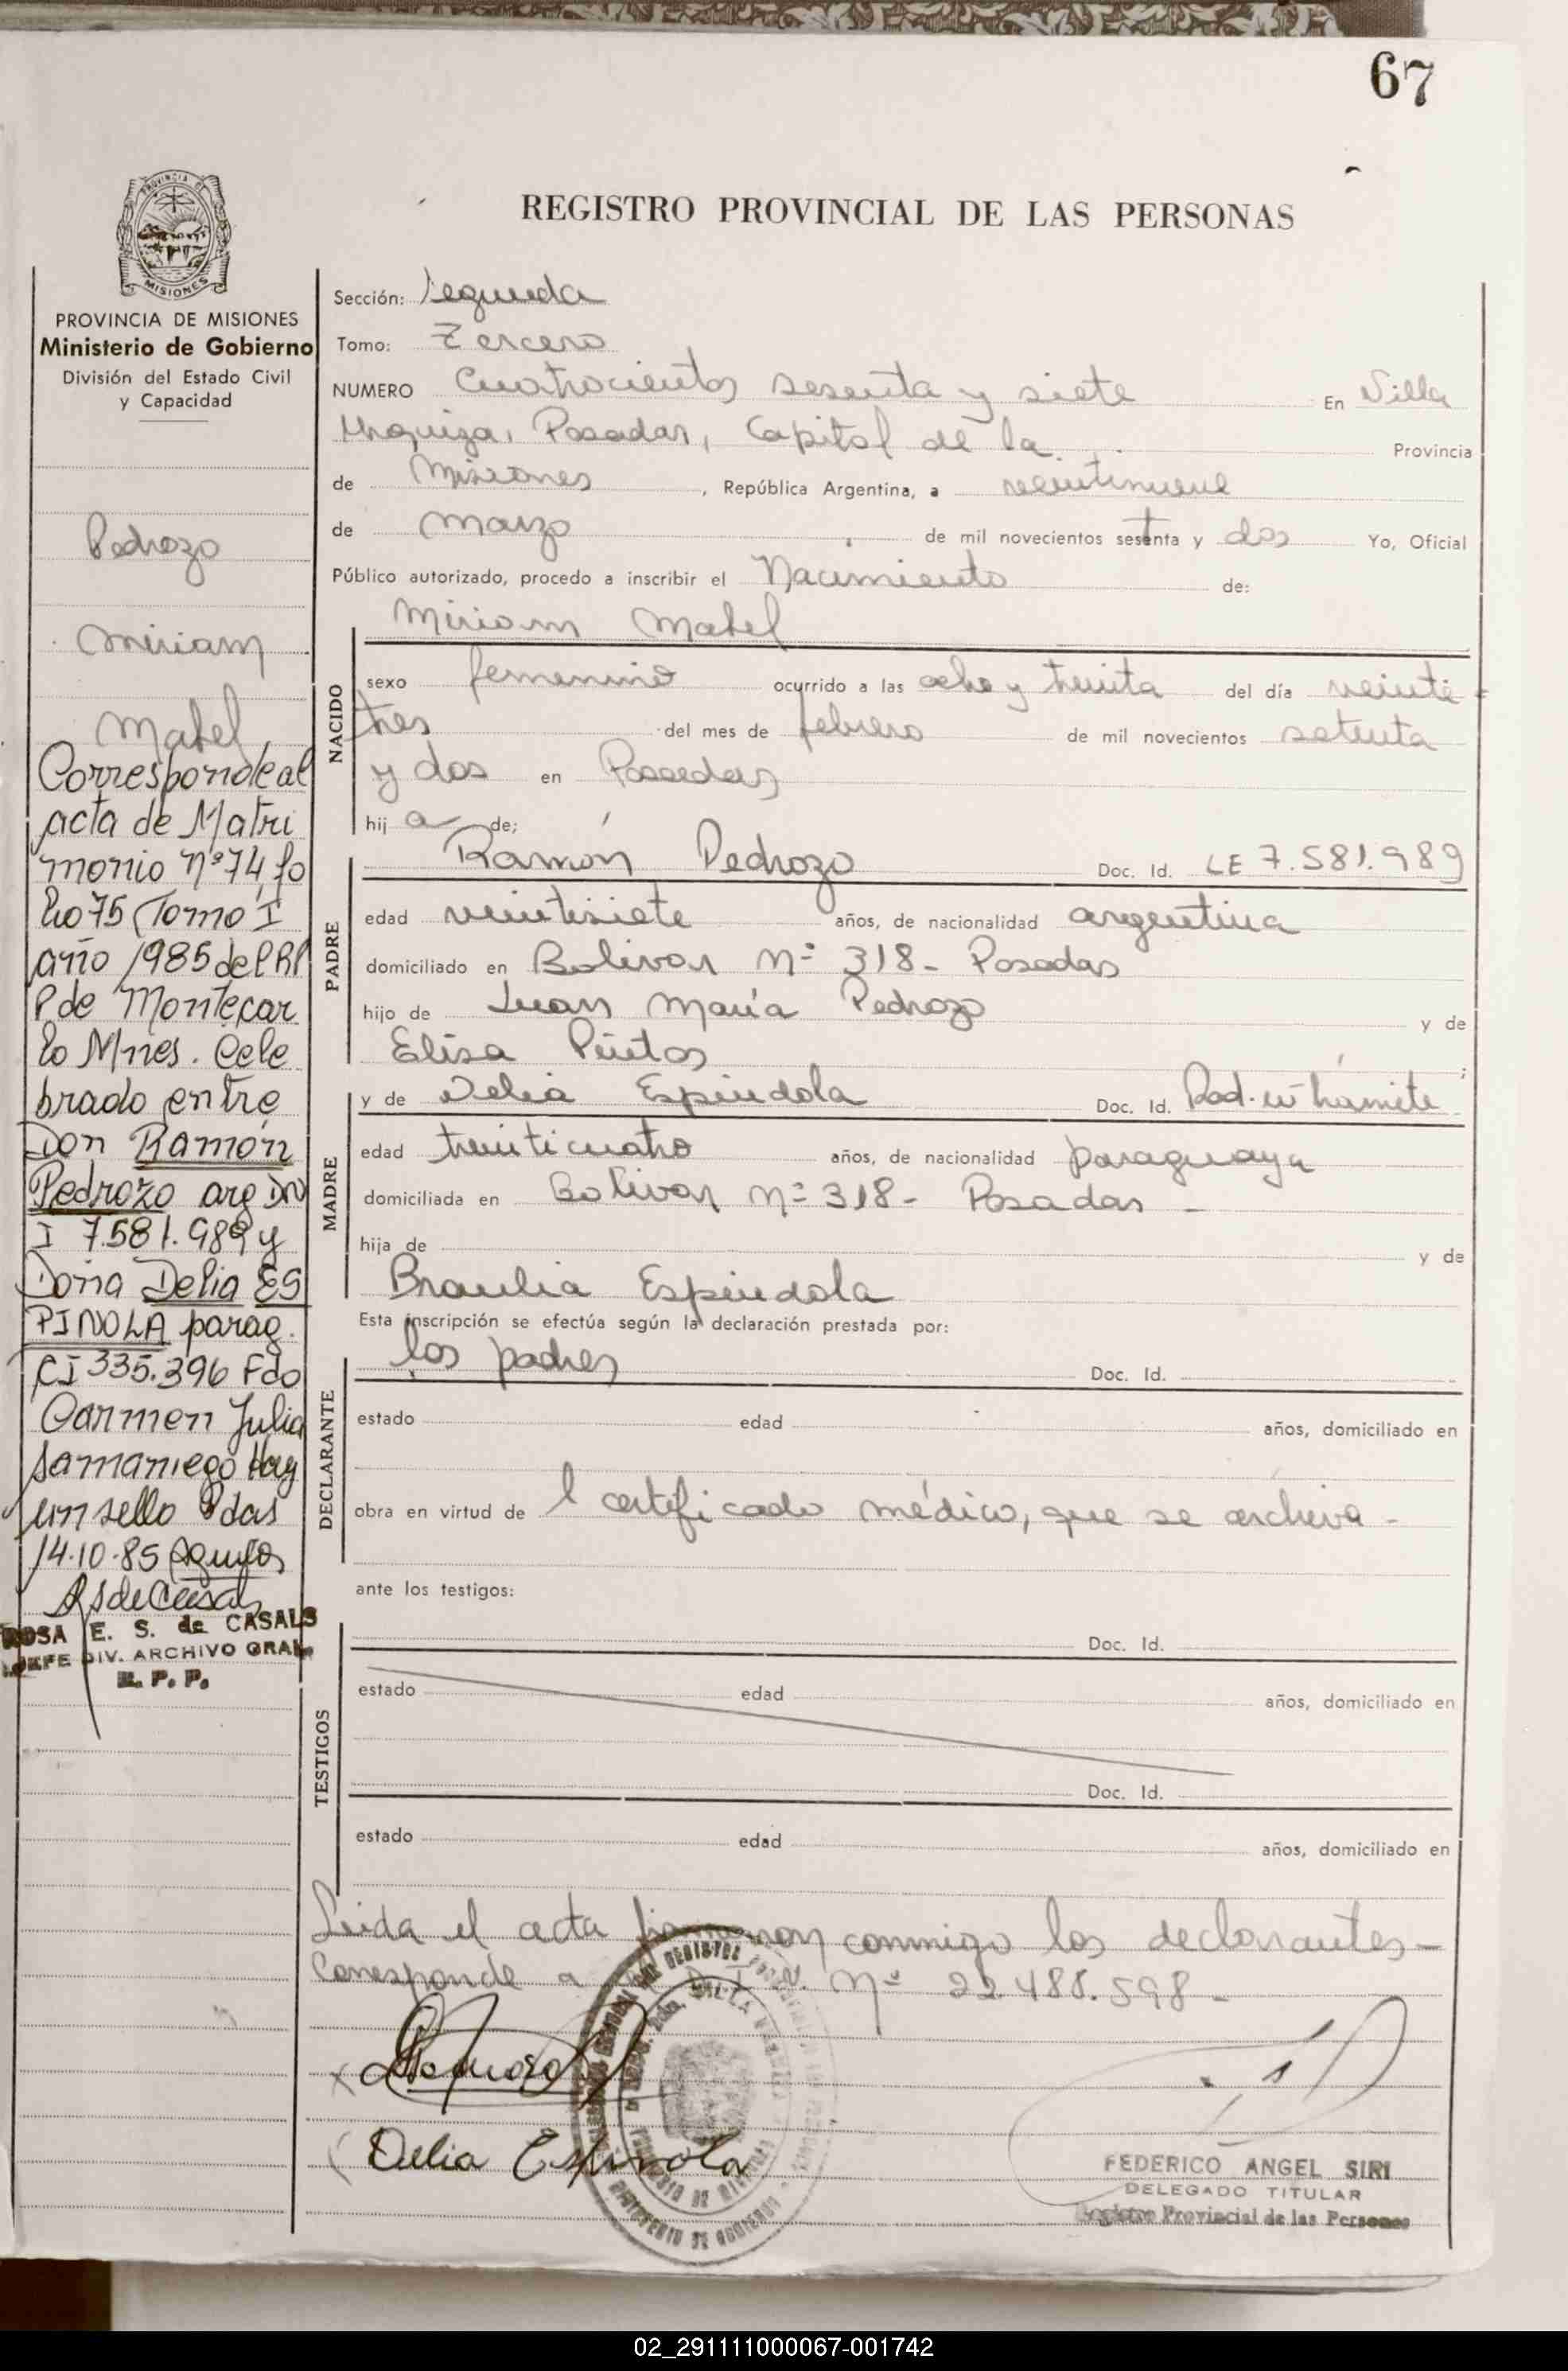 67
REGISTRO PROVINCIAL DE LAS PERSONAS
PROVINCIA DE
MISIONES
PROVINCIA DE MISIONES
Ministerio de Gobierno
División del Estado Civil
y Capacidad
Pedrozo
Miriam
Mabel
Corresponde al
acta de Matri
monio nº 74 fo
lio 75 Tomo I
año 1985 del RP
P de Montecar
lo Mnes. Cele
brado entre
Don Ramón
Pedrozo arg DN
I 7.581.989 y
Doña Delia ES
PINOLA parag.
CI 335.396 Fdo
Carmen Julia
Samaniego Hay
un sello Pdas
14.10.85
ROSA E. S. de CASALS
JEFE DIV. ARCHIVO GRAL.
R. P. P.
Sección: Segunda
Tomo: Tercero
NUMERO Cuatrocientos sesenta y siete En Villa
Urquiza, Posadas, Capital de la Provincia
de Misiones, República Argentina, a veintinueve
de marzo de mil novecientos setenta y dos Yo, Oficial
Público autorizado, procedo a inscribir el Nacimiento de:
Miriam Mabel
NACIDO
sexo femenino ocurrido a las ocho y treinta del día veinti-
tres del mes de febrero de mil novecientos setenta
y dos en Posadas
hij a de;
PADRE
Ramón Pedrozo Doc. Id. LE 7.581.989
edad veintisiete años, de nacionalidad argentina
domiciliado en Bolivar Nº 318- Posadas
hijo de Juan María Pedrozo y de
Elisa Pintos ;
MADRE
y de Delia Espíndola Doc. Id. Rad. en trámite
edad treinticuatro años, de nacionalidad paraguaya
domiciliada en Bolivar Nº 318- Posadas -
hija de y de
Braulia Espíndola
Esta inscripción se efectúa según la declaración prestada por:
DECLARANTE
los padres Doc. Id.
estado edad años, domiciliado en
obra en virtud de l certificado médico, que se archiva -
ante los testigos:
TESTIGOS
Doc. Id.
estado edad años, domiciliado en
Doc. Id.
estado edad años, domiciliado en
Leida el acta firmaron conmigo los declarantes-
Corresponde a D.N.I. Nº 22.488.598-
Delia Espinola
FEDERICO ANGEL SIRI
DELEGADO TITULAR
Registro Provincial de las Personas
02_291111000067-001742